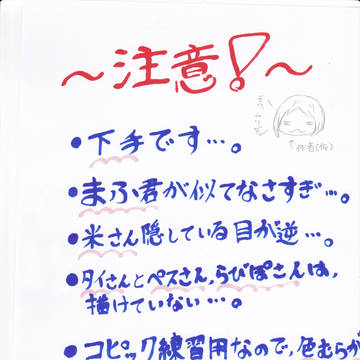 ～注意！～
↑作者(仮)
●下手です…。
●まふ君が似てなさすぎ…。
●米さん隠している目が逆…。
●タイさんとペスさん,らびぽさんは,
描けていない…。
●コピック練習用なので,色むらが